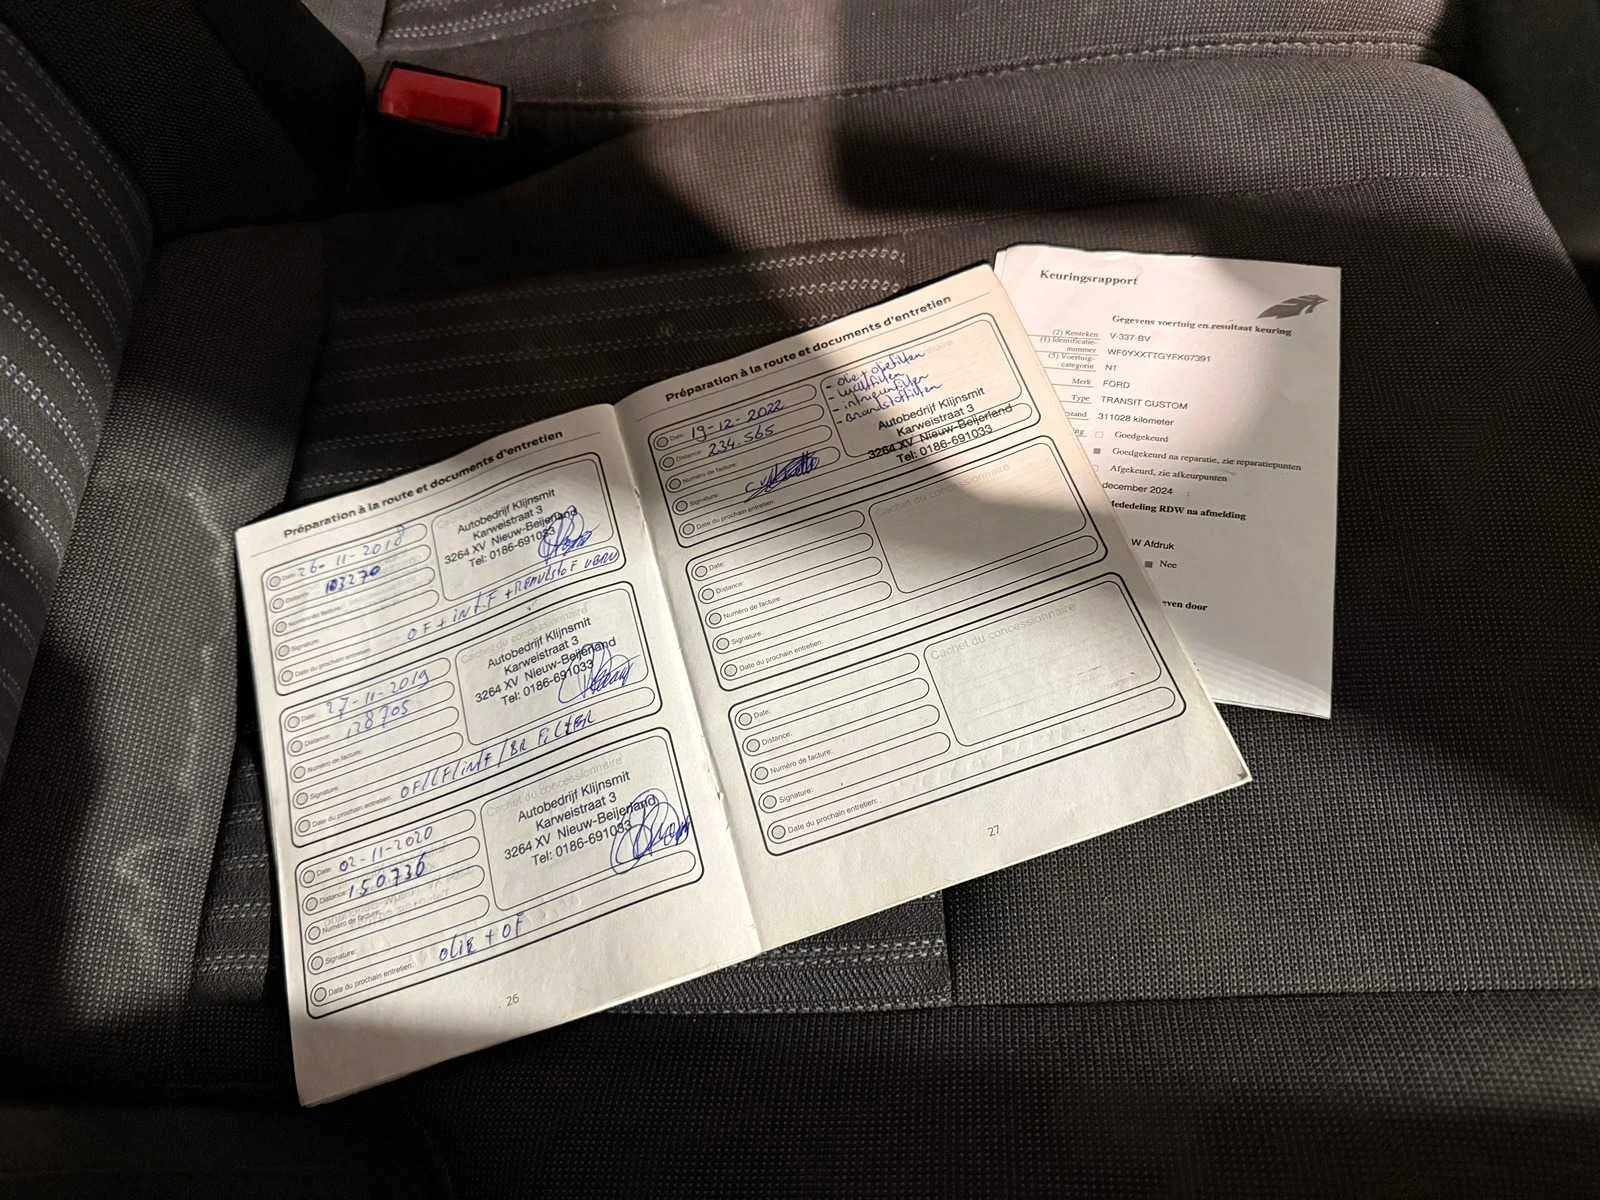 Préparation à la route et documents d'entretien
Date: 26-11-2018
Distance: 103270
Numéro de facture:
Signature:
Date du prochain entretien:
Autobedrijf Klijnsmit
Karweistraat 3
3264 XV Nieuw-Beijerland
Tel: 0186-691033
Cachet du concessionnaire
Date: 27-11-2019
Distance: 128705
Numéro de facture:
Signature:
Date du prochain entretien: OF/LF/intF/BR FilTER
Autobedrijf Klijnsmit
Karweistraat 3
3264 XV Nieuw-Beijerland
Tel: 0186-691033
Cachet du concessionnaire
Date: 02-11-2020
Distance: 150.736
Numéro de facture:
Signature:
Date du prochain entretien: oliE + OF
Autobedrijf Klijnsmit
Karweistraat 3
3264 XV Nieuw-Beijerland
Tel: 0186-691033
26
Préparation à la route et documents d'entretien
Date: 19-12-2022
Distance: 234.565
Numéro de facture:
Signature:
Date du prochain entretien:
- olie + oliefilter
- luchtfilter
- interieurfilter
- Brandstoffilter
Autobedrijf Klijnsmit
Karweistraat 3
3264 XV Nieuw-Beijerland
Tel: 0186-691033
Date:
Distance:
Numéro de facture:
Signature:
Date du prochain entretien:
Cachet du concessionnaire
Date:
Distance:
Numéro de facture:
Signature:
Date du prochain entretien:
Cachet du concessionnaire
27
Keuringsrapport
Gegevens voertuig en resultaat keuring
(2) Kenteken V-337-BV
(1) Identificatie-
nummer WF0YXXTTGYFK07391
(5) Voertuig-
categorie N1
Merk FORD
Type TRANSIT CUSTOM
stand 311028 kilometer
Goedgekeurd
Goedgekeurd na reparatie, zie reparatiepunten
Afgekeurd, zie afkeurpunten
december 2024
Mededeling RDW na afmelding
W Afdruk
Nee
even door